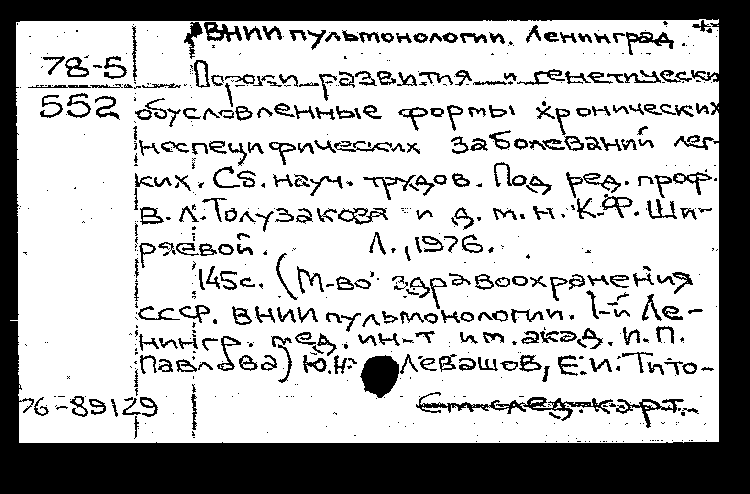 ВНИИ пульмонологии. Ленинград.
78-5 Пороки развития и генетически
552 обусловленные формы хронических
неспецифических заболеваний лег-
ких. Сб. науч. трудов. Под ред. проф.
В. Л. Толузакова и д. м. н. К. Ф. Ши-
ряевой. Л., 1976.
145с. (М-во здравоохранения
СССР. ВНИИ пульмонологии. 1-й Ле-
нингр. мед. ин-т им. акад. И. П.
Павлова) Ю.Н. Левашов, Е.И. Тито-
76-89129 См. след. карт.